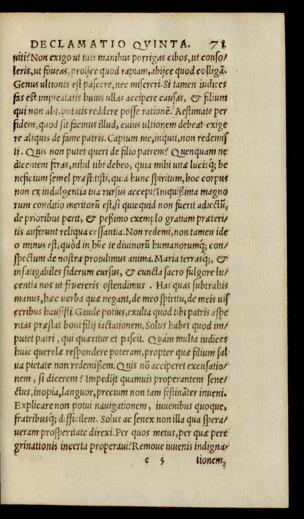 DECLAMATIO QVINTA. 71
uitis? Non exigo ut tuis manibus porrigas cibos, ut conso/
leris, ut foueas, proijce quod raptam, abijce quod colligā.
Genus ultionis est pascere, nec misereri. Si tamen iudices
fas est impietatis huius ullas accipere causas, & filium
qui non alit, putatis reddere posse rationē. Aestimate per
fidem, quod sit facinus illud, cuius ultionem debeat exige
re aliquis de fame patris. Captum me, inquit, non redemis
ti. Quis non putet queri de filio patrem? Quenquam ne
dicentem feras, nihil tibi debeo, quia mihi uitæ lucisq́; be
neficium semel præstitisti, quia hunc spiritum, hoc corpus
non ex indulgentia tua rursus accepi? Iniquissima magno
rum conditio meritorū est, si quicquid non fuerit adiectū,
de prioribus perit, & pessimo exemplo gratiam præteri/
tis auferunt reliqua cessantia. Non redemi, non tamen ide
o minus est, quòd in hūc te diuinorū humanorumq́; con/
spectum de nostra protulimus anima. Maria terrasq́;, &
infatigabiles siderum cursus, & cuncta sacro fulgore lu/
centia nos ut fruereris ostendimus. Has quas subtrahis
manus, hæc uerba quæ negant, de meo spiritu, de meis uis
ceribus hausisti. Gaude potius, exulta quod tibi patris aspe
ritas præstat boni filij iactationem. Solus habet quod im/
putet patri, qui quæritur et pascit. Quàm multa iudices
huic querelæ respondere poteram, propter quæ filium sal
ua pietate non redemissem. Quis nō acciperet excusatio/
nem, si dicerem? Impedijt quamuis properantem sene/
ctus, inopia, languor, precum non tam festināter inueni.
Explicare non potui nauigationem, iuuenibus quoque,
fratribusq́; difficilem. Solus ac senex non illa qua spera/
ueram prosperitate direxi. Per quos metus, per quæ pere
grinationis incerta properaui? Remoue iuuenis indigna/
e 5 tionem,